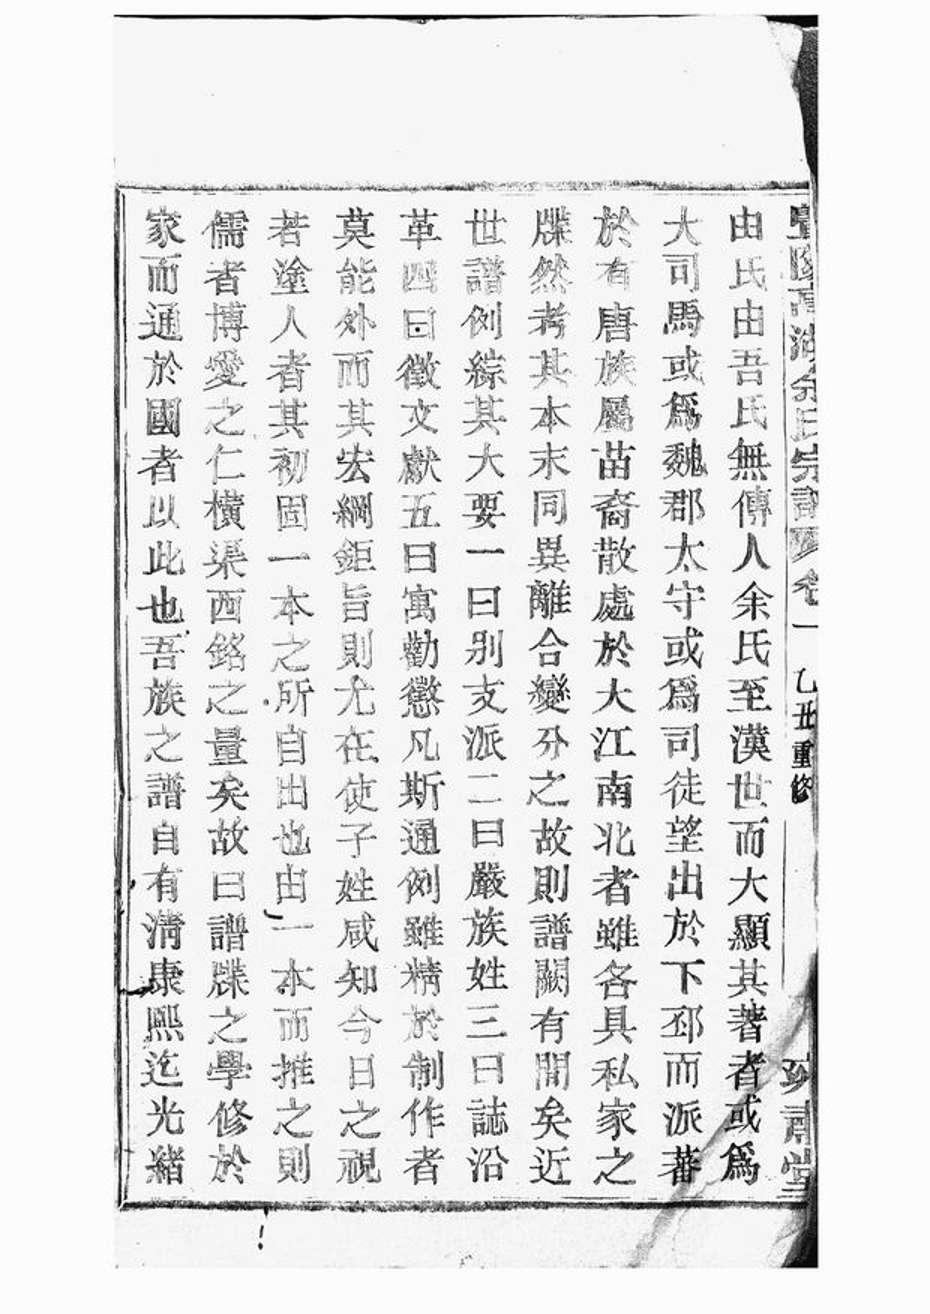 高湖余氏宗譜 卷一 乙丑重修 肅堂
由氏由吾氏無傳人余氏至漢世而大顯其著者或爲
大司馬或爲魏郡太守或爲司徒望出於下邳而派蕃
於有唐族屬苗裔散處於大江南北者雖各具私家之
牒然考其本末同異離合變分之故則譜闕有間矣近
世譜例綜其大要一曰别支派二曰嚴族姓三曰誌沿
革四曰徵文獻五曰寓勸懲凡斯通例雖精於制作者
莫能外而其宏綱鉅旨則尤在使子姓咸知今日之視
若塗人者其初固一本之所自出也由一本而推之則
儒者博愛之仁橫渠西銘之量矣故曰譜牒之學修於
家而通於國者以此也吾族之譜自有淸康熙迄光緒